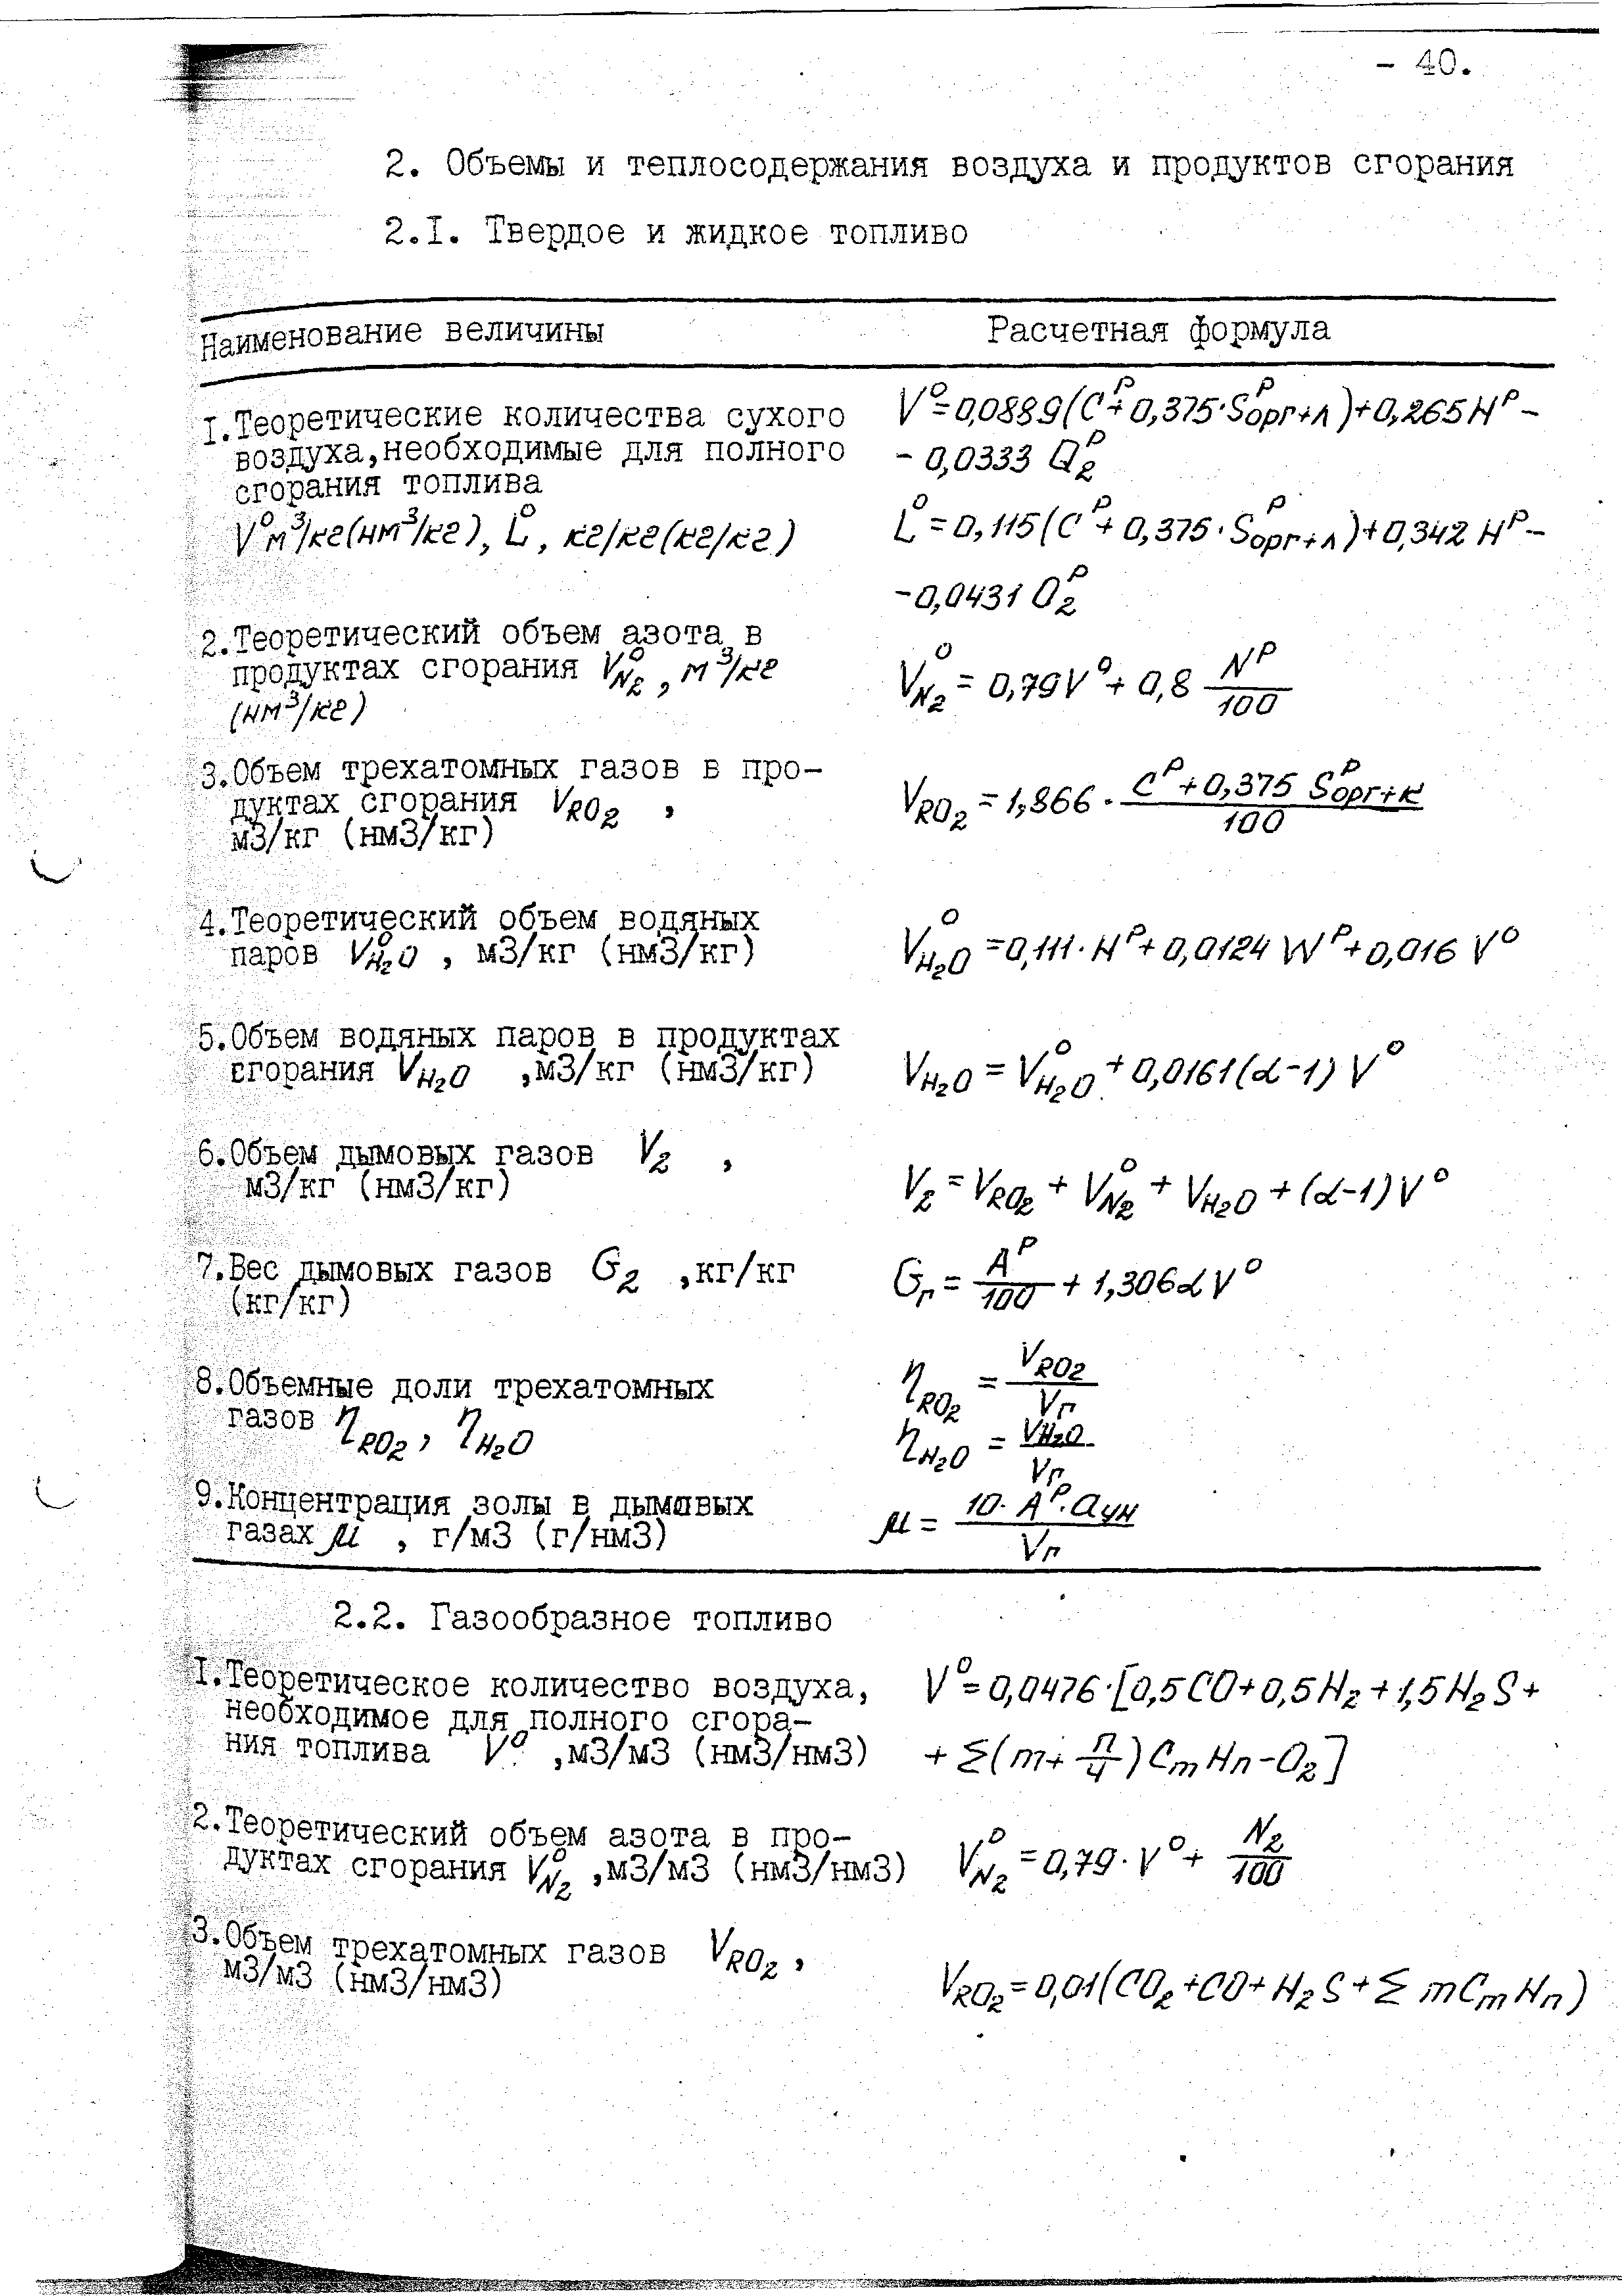 - 40.
2. Объемы и теплосодержания воздуха и продуктов сгорания
2.I. Твердое и жидкое топливо
Наименование величины Расчетная формула
I.Теоретические количества сухого V⁰=0,0889(Cᵖ+0,375·Sᵖорг+л)+0,265Hᵖ–
воздуха,необходимые для полного – 0,0333 Qᵖ₂
сгорания топлива
V⁰м³/кг(нм³/кг), L⁰, кг/кг(кг/кг) L⁰=0,115(Cᵖ+0,375·Sᵖорг+л)+0,342 Hᵖ–
–0,0431 Oᵖ₂
2.Теоретический объем азота в
продуктах сгорания V⁰N₂, м³/кг V⁰N₂=0,79V⁰+0,8 Nᵖ/100
(нм³/кг)
3.Объем трехатомных газов в про-
дуктах сгорания VRO₂ , VRO₂=1,866·(Cᵖ+0,375 Sᵖорг+к)/100
м3/кг (нм3/кг)
4.Теоретический объем водяных
паров V⁰H₂O , м3/кг (нм3/кг) V⁰H₂O=0,111·Hᵖ+0,0124 Wᵖ+0,016 V⁰
5.Объем водяных паров в продуктах
сгорания VH₂O ,м3/кг (нм3/кг) VH₂O=V⁰H₂O+0,0161(α–1) V⁰
6.Объем дымовых газов Vг ,
м3/кг (нм3/кг) Vг=VRO₂+V⁰N₂+VH₂O+(α–1)V⁰
7.Вес дымовых газов Gг ,кг/кг Gг=Aᵖ/100+1,306αV⁰
(кг/кг)
8.Объемные доли трехатомных ηRO₂=VRO₂/Vг
газов ηRO₂, ηH₂O ηH₂O=VH₂O/Vг
9.Концентрация золы в дымовых
газах μ , г/м3 (г/нм3) μ=10·Aᵖ·aун/Vг
2.2. Газообразное топливо
I.Теоретическое количество воздуха, V⁰=0,0476·[0,5CO+0,5H₂+1,5H₂S+
необходимое для полного сгора-
ния топлива V⁰ ,м3/м3 (нм3/нм3) +Σ(m+n/4)CmHn–O₂]
2.Теоретический объем азота в про-
дуктах сгорания V⁰N₂ ,м3/м3 (нм3/нм3) V⁰N₂=0,79·V⁰+N₂/100
3.Объем трехатомных газов VRO₂,
м3/м3 (нм3/нм3) VRO₂=0,01(CO₂+CO+H₂S+Σ mCmHn)